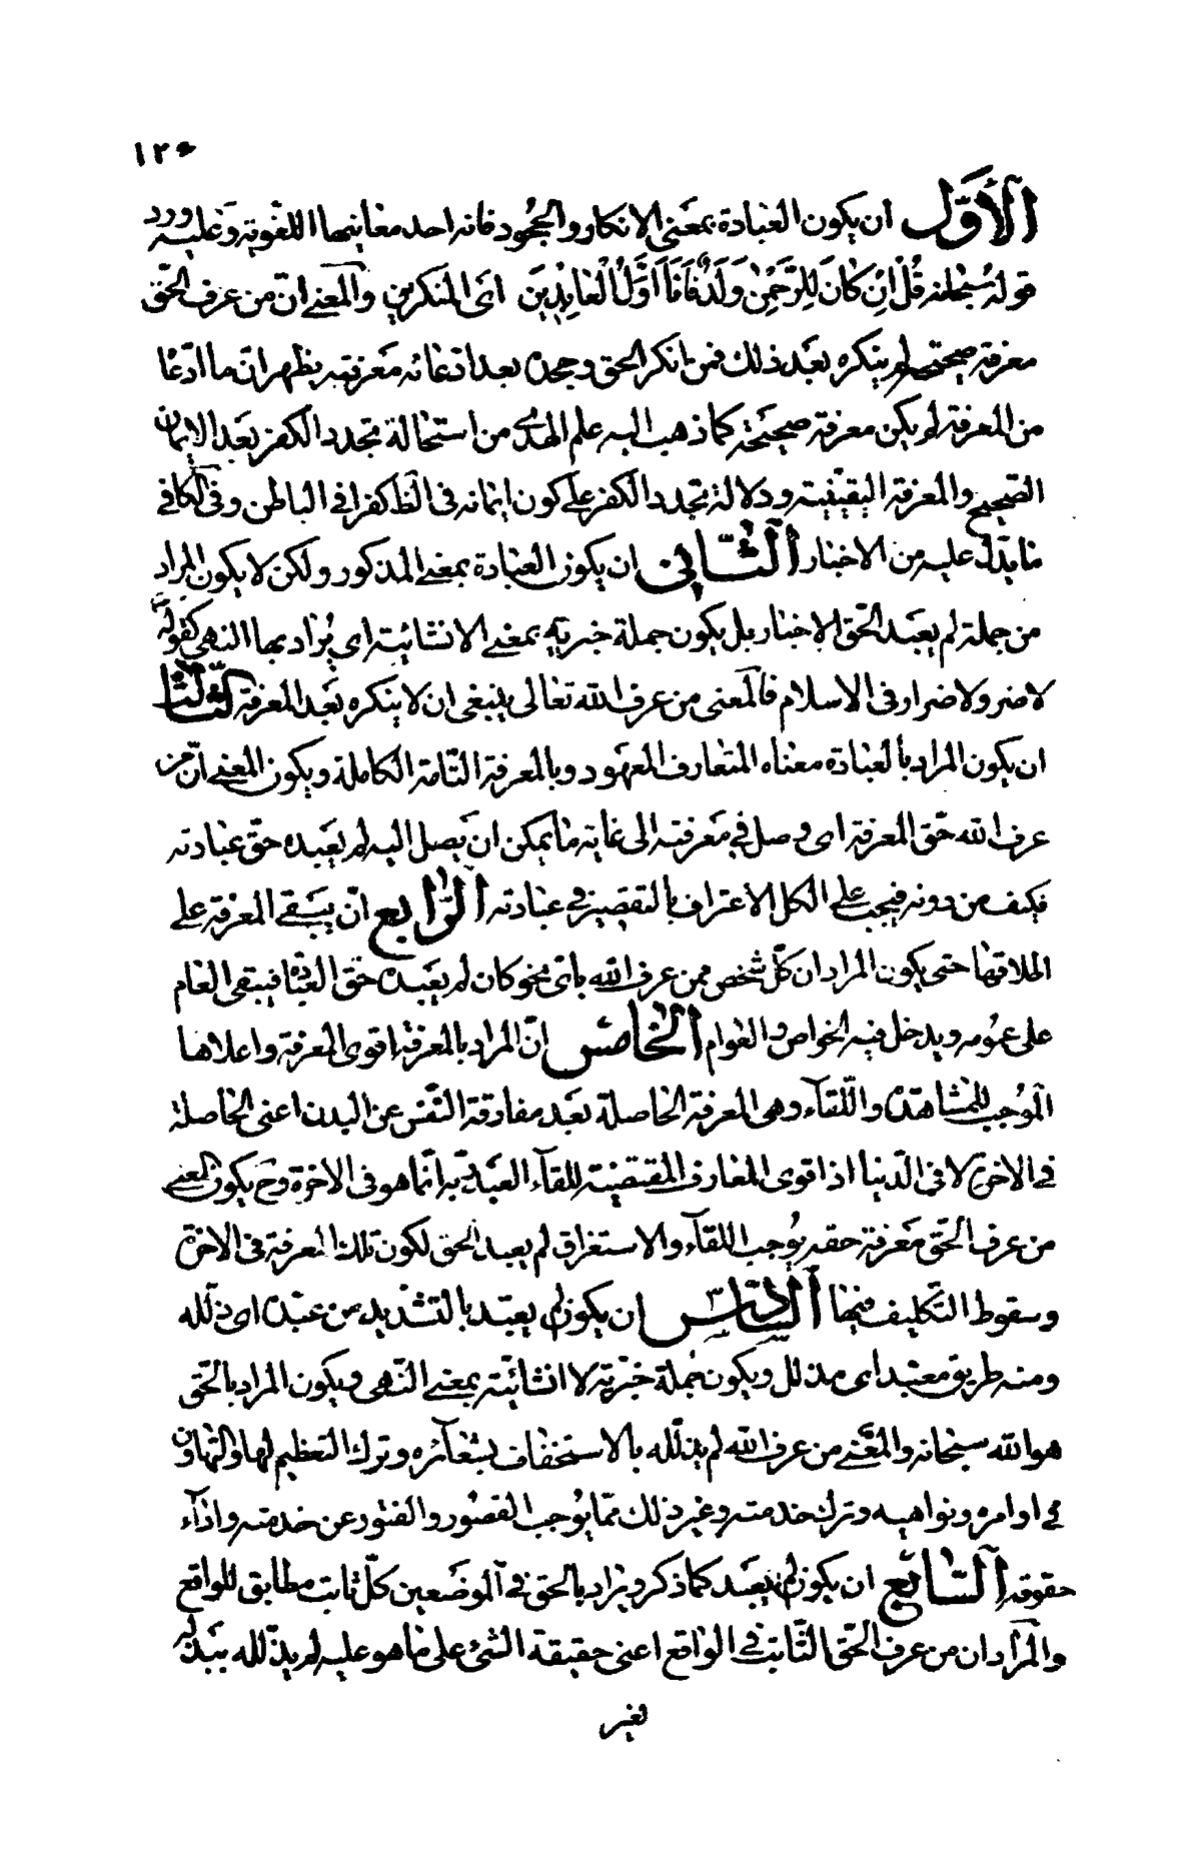 ١٢٠
الأوّل ان يكون العبادة بمعنى الانكار والجُحُود فانه احد معانيها اللغويّة وَعليه ورد
قوله سُبحانه قُلْ اِنْ كانَ لِلرَّحْمٰنِ وَلَدٌ فَاَنَا اَوَّلُ الْعابِدينَ اى المنكرين والمعنى انّ من عرف الحَقّ
معرفة صحيحة لم ينكره بعَد ذلك فمن انكر الحق وجحده بعد ادّعائه مَعرفته يظهر انّ ما ادّعاه
من المعرفة لم يكن معرفة صحيحَة كما ذهب اليه علم الهدى من استحالة تجدد الكفر بعَد الايمان
الصّحيح والمعرفة اليقينيّة ودلالة تجدد الكفر على كون ايمانه فى الظ كفرا فى الباطن وفى الكافى
ما يدّل عليه من الاخبار الثّانى ان يكون العبادة بمعنى المذكور ولكن لا يكون المراد
من جملة لم يعبَد الحق الاخبار بل يكون جملة خبرية بمعنى الانشائيّة اى يُراد بها النهى كقوله
لا ضرر ولا ضرار فى الاسلام فالمَعنى من عرف الله تعالى ينبغى ان لا ينكره بعَد المعرفة الثّالث
ان يكون المراد بالعبادة معناه المتعارف المعهود وبالمعرفة التّامة الكاملة ويكون المعنى انّ من
عرف الله حَقّ المعرفة اى وصل فى مَعرفته الى غاية ما يمكن ان يَصل اليه لم يعَبده حَقّ عبادته
فكيف من دونه فيجب على الكل الاعتراف بالتقصير فى عبادته الرّابع ان يبَقى المعرفة على
اطلاقها حتى يكون المراد ان كلّ شخص ممن عرف الله باىّ نحو كان لم يعَبده حَق العبادة فيبقى العام
على عمُومه ويدخل فيه الخواص والعوام الخامس انّ المراد بالمعرفة اقوى المعرفة واعلاها
المُوجب للمشاهدة واللّقآء وهى المعرفة الحاصلة بعَد مفارقة النّفس عن البدن اعنى الحاصلة
فى الاخرة لا فى الدّنيا اذ اقوى المعارف المقتضية للقآء العَبد ربه انّما هو فى الاخرة وح يكون المعنى
من عرف الحَق مَعرفة حقه يُوجب اللقآء والاستغراق لم يعبد الحق لكون تلك المعرفة فى الاخرة
وسقوط التّكليف فيها السّادس ان يكون لم يعبّد بالتشديد من عبّده اى ذلّله
ومنه طريق معبّد اى مذلل ويكون جُملة خبريّة لا انشائيّة بمعنى النّهى ويكون المراد بالحَق
هو الله سبحانه والمعَنى من عرف الله لم يذلّله بالاستخفاف بشعآئره وترك التعظيم لها والتهاون
فى اوامره ونواهيه وترك خدمته وغير ذلك ممّا يُوجب القصُور والفتور عن خدمته واداآء
حقوقه السّابع ان يكون لم يعبّد كما ذكر ويراد بالحق فى المَوضَعين كلّ ثابت مطابق للواقع
والمرَاد ان من عرف الحَق الثّابت فى الواقع اعنى حقيقة الشئ على ما هو عليه لم يذلّله بتبَديله
بغير